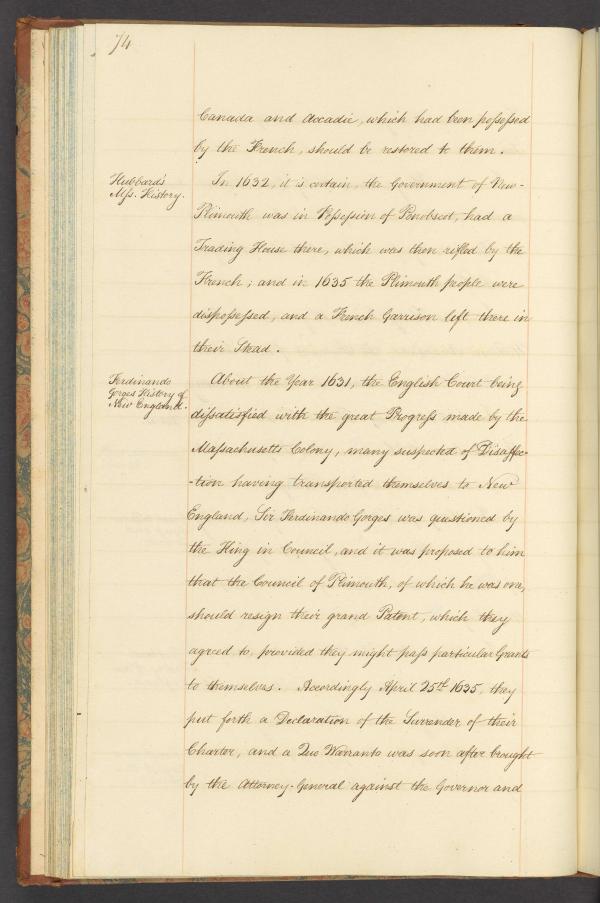 74
Canada and Accadie, which had been possessed
by the French, should be restored to them.
Hubbard's
Mss. History.
In 1632, it is certain, the Government of New-
Plimouth was in Possession of Penobscot, had a
Trading House there, which was then rifled by the
French; and in 1635 the Plimouth people were
dispossessed, and a French Garrison left there in
their Stead.
Ferdinando
Gorges History of
New England.
About the Year 1631, the English Court being
dissatisfied with the great Progress made by the
Massachusetts Colony, many suspected of Disaffec-
-tion having transported themselves to New
England, Sir Ferdinando Gorges was questioned by
the King in Council, and it was proposed to him
that the Council of Plimouth, of which he was one,
should resign their grand Patent, which they
agreed to, provided they might pass particular Grants
to themselves. Accordingly April 25th 1635, they
put forth a Declaration of the Surrender of their
Charter, and a Quo Warranto was soon after brought
by the Attorney-General against the Governor and